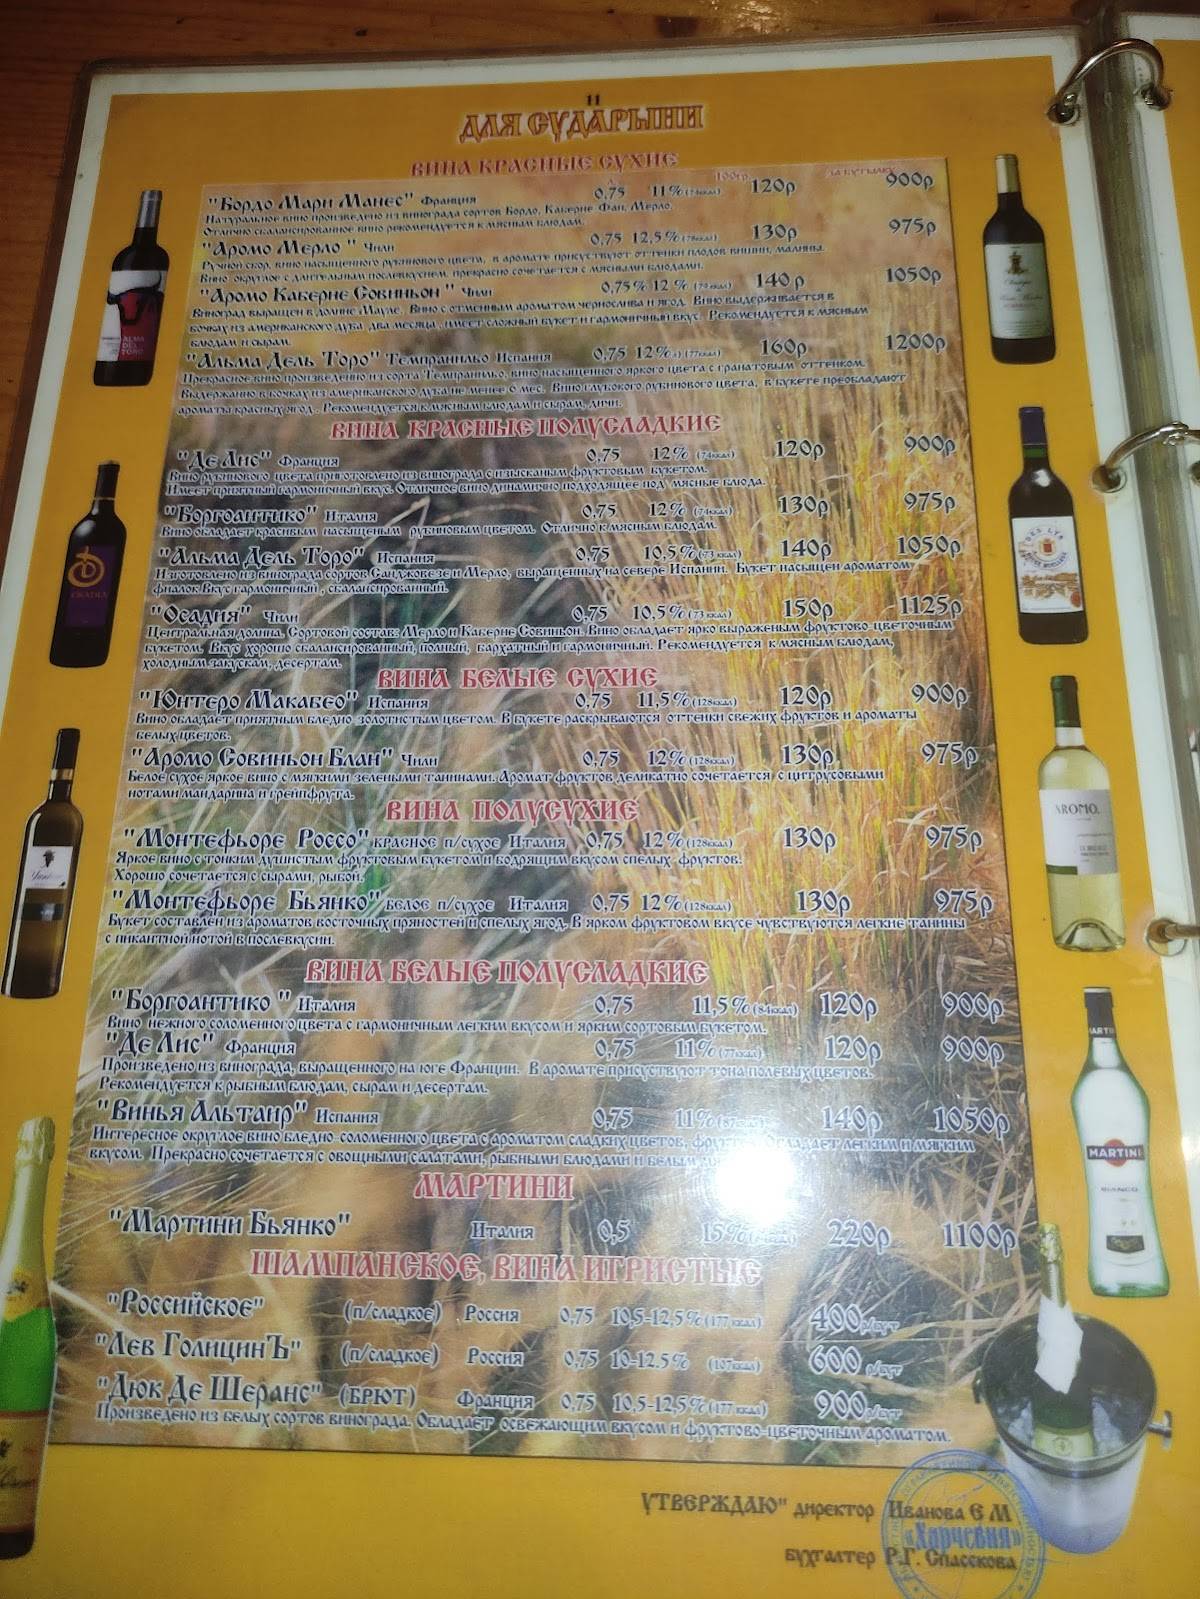 11
ДЛЯ СУДАРЫНИ
ВИНА КРАСНЫЕ СУХИЕ
100гр за бутылку
"Бордо Мари Манес" Франция 0,75 11% (74ккал) 120р 900р
Натуральное вино произведено из винограда сортов Бордо, Каберне Фан, Мерло.
Отлично сбалансированное вино рекомендуется к мясным блюдам.
"Аромо Мерло " Чили 0,75 12,5% (78ккал) 130р 975р
Ручной сбор, вино насыщенного рубинового цвета, в аромате присутствуют оттенки плодов вишни, малины.
Вино округлое с длительным послевкусием, прекрасно сочетается с мясными блюдами.
"Аромо Каберне Совиньон " Чили 0,75% 12 % (79 ккал) 140 р 1050р
Виноград выращен в долине Мауле. Вино с отменным ароматом чернослива и ягод. Вино выдерживается в
бочках из американского дуба два месяца , имеет сложный букет и гармоничный вкус. Рекомендуется к мясным
блюдам и сырам.
"Альма Дель Торо" Темпранильо Испания 0,75 12% (77ккал) 160р 1200р
Прекрасное вино произведенно из сорта Темпранильо, вино насыщенного яркого цвета с гранатовым оттенком.
Выдержанно в бочках из американского дуба не менее 6 мес. Вино глубокого рубинового цвета, в букете преобладают
ароматы красных ягод . Рекомендуется к мясным блюдам и сырам, дичи.
ВИНА КРАСНЫЕ ПОЛУСЛАДКИЕ
"Де Лис" Франция 0,75 12% (74ккал) 120р 900р
Вино рубинового цвета приготовлено из винограда с изысканым фруктовым букетом.
Имеет приятный гармоничный вкус. Отличное вино динамично подходящее под мясные блюда.
"Боргоантико" Италия 0,75 12% (74ккал) 130р 975р
Вино обладает красивым насыщеным рубиновым цветом. Отлично к мясным блюдам.
"Альма Дель Торо" Испания 0,75 10,5% (73 ккал) 140р 1050р
Изготовлено из винограда сортов Санджовезе и Мерло, выращенных на севере Испании. Букет насыщен ароматом
фиалок Вкус гармоничный , сбалансированный.
"Осадия" Чили 0,75 10,5% (73 ккал) 150р 1125р
Центральная долина, Сортовой состав Мерло и Каберне Совиньон. Вино обладает ярко выраженым фруктово-цветочным
букетом. Вкус хорошо сбалансированный, полный, бархатный и гармоничный. Рекомендуется к мясным блюдам,
холодным закускам, десертам.
ВИНА БЕЛЫЕ СУХИЕ
"Юнтеро Макабео" Испания 0,75 11,5% (128ккал) 120р 900р
Вино обладает приятным бледно-золотистым цветом. В букете раскрываются оттенки свежих фруктов и ароматы
белых цветов.
"Аромо Совиньон Блан" Чили 0,75 12% (128ккал) 130р 975р
Белое сухое яркое вино с мягкими зелеными танинами. Аромат фруктов деликатно сочетается с цитрусовыми
нотами мандарина и грейпфрута.
ВИНА ПОЛУСУХИЕ
"Монтефьоре Россо" красное п/сухое Италия 0,75 12% (128ккал) 130р 975р
Яркое вино с тонким душистым фруктовым букетом и бодрящим вкусом спелых фруктов.
Хорошо сочетается с сырами, рыбой.
"Монтефьоре Бьянко" белое п/сухое Италия 0,75 12% (128ккал) 130р 975р
Букет составлен из ароматов восточных пряностей и спелых ягод. В ярком фруктовом вкусе чувствуются легкие танины
с пикантной нотой в послевкусии.
ВИНА БЕЛЫЕ ПОЛУСЛАДКИЕ
"Боргоантико " Италия 0,75 11,5% (84ккал) 120р 900р
Вино нежного соломенного цвета с гармоничным легким вкусом и ярким сортовым букетом.
"Де Лис" Франция 0,75 11% (77ккал) 120р 900р
Произведено из винограда, выращенного на юге Франции. В аромате присутствуют тона полевых цветов.
Рекомендуется к рыбным блюдам, сырам и десертам.
"Винья Альтаир" Испания 0,75 11% (87ккал) 140р 1050р
Интересное округлое вино бледно-соломенного цвета с ароматом сладких цветов, Обладает легким и мягким
вкусом. Прекрасно сочетается с овощными салатами, рыбными блюдами и белым
МАРТИНИ
"Мартини Бьянко" Италия 0,5 15% 220р 1100р
ШАМПАНСКОЕ, ВИНА ИГРИСТЫЕ
"Российское" (п/сладкое) Россия 0,75 10,5-12,5% (177 ккал) 400р/бут
"Лев ГолицинЪ" (п/сладкое) Россия 0,75 10-12.5% (107ккал) 600 р/бут
"Дюк Де Шеранс" (БРЮТ) Франция 0,75 10,5-12,5% (177 ккал) 900р/бут
Произведено из белых сортов винограда. Обладает освежающим вкусом и фруктово-цветочным ароматом.
УТВЕРЖДАЮ" директор Иванова Е М
«Харчевня»
бухгалтер Р.Г. Спасскова
ALMA
DEL
TORO
AROMO.
MARTINI
MARTINI
BIANCO